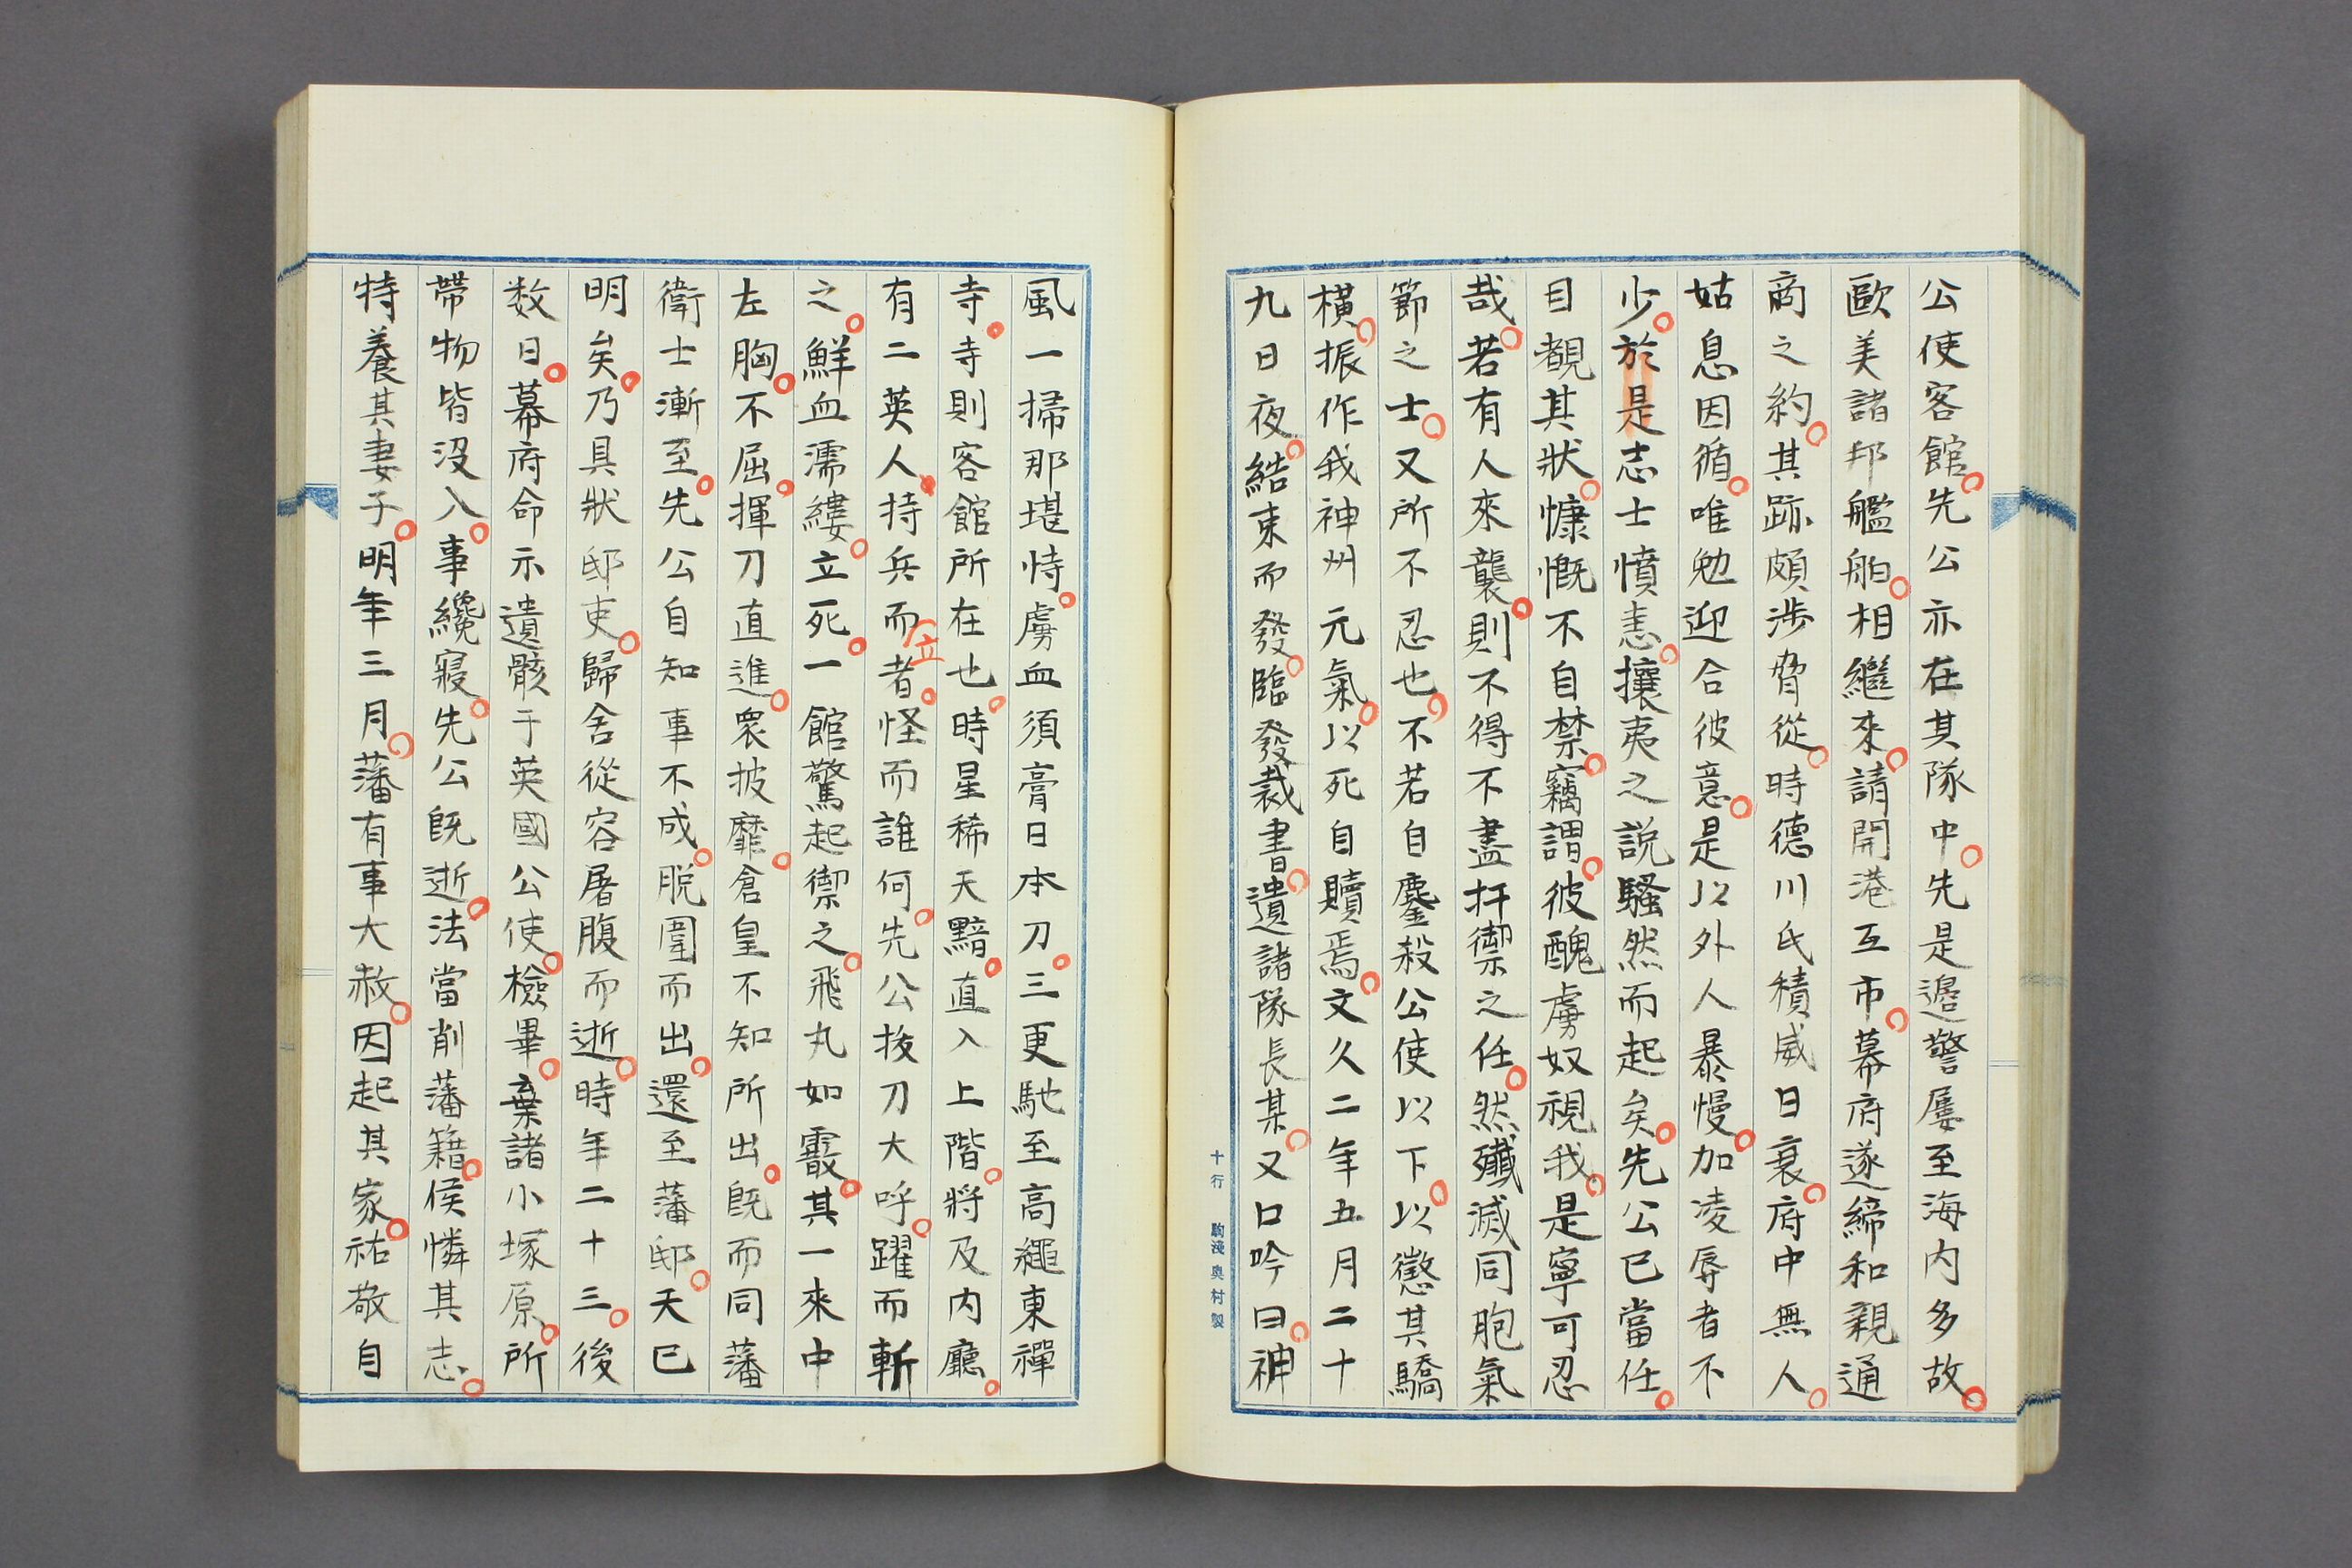 公使客館。先公亦在其隊中。先是邉警屢至海内多故。
歐美諸邦艦舶。相繼來。請開港互市。幕府遂締和親通
商之約。其跡頗渉脅從。時德川氏積威日衰。府中無人。
姑息因循。唯勉迎合彼意。是以外人暴慢。加凌辱者不
少。於是志士憤恚。攘夷之説騷然而起矣。先公已當任。
目覩其狀。慷慨不自禁。竊謂。彼醜虜奴視我。是寧可忍
哉。若有人來襲。則不得不盡扞禦之任。然殲滅同胞氣
節之士。又所不忍也。不若自鏖殺公使以下。以懲其驕
橫。振作我神州元氣。以死自贖焉。文久二年五月二十
九日夜。結束而發。臨發裁書。遺諸隊長某。又口吟曰。神
十行 駒淺奥村製
風一掃那堪恃。虜血須膏日本刀。三更馳至高繩東禪
寺。寺則客館所在也。時星稀天黯。直入上階。將及内廳。
有二英人。持兵而立者。怪而誰何。先公拔刀大呼。躍而斬
之。鮮血濡縷。立死。一館驚起禦之。飛丸如霰。其一來中
左胸。不屈。揮刀直進。衆披靡。倉皇不知所出。既而同藩
衛士漸至。先公自知事不成。脱圍而出。還至藩邸。天已
明矣。乃具狀邸吏。歸舍從容屠腹而逝。時年二十三。後
数日。幕府命示遺骸于英國公使。檢畢。棄諸小塚原。所
帶物皆没入。事纔寢。先公既逝。法當削藩籍。侯憐其志。
特養其妻子。明年三月。藩有事大赦。因起其家。祐敬自